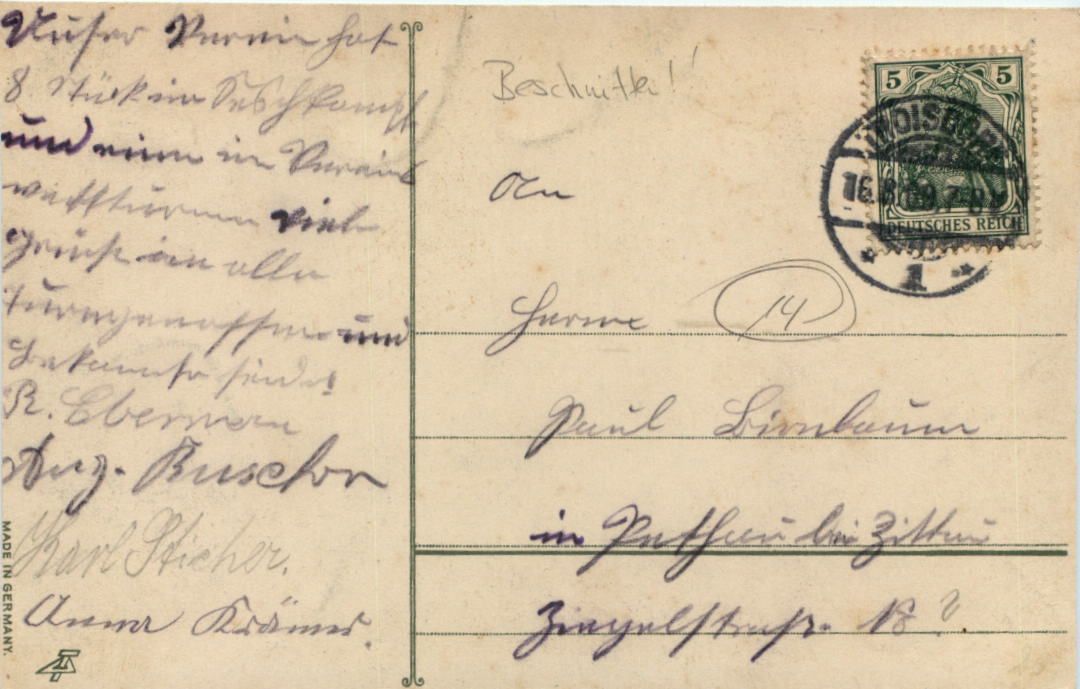 Unser Verein hat
8 Stück im Sechkampf
und einen im Vereins
wettturnen viele
Grüße an alle
Turngenossen und
Bekannte sendet
R. Ebermann
Aug. Buschor
Karl Sticher.
Anna Krämer.
MADE IN GERMANY.
Beschnitten!
5 5
DEUTSCHES REICH
16.8. 7-8
1
An
Herrn
14
Paul Birnbaum
in Pethau bei Zittau
Ziegelstraße No ?